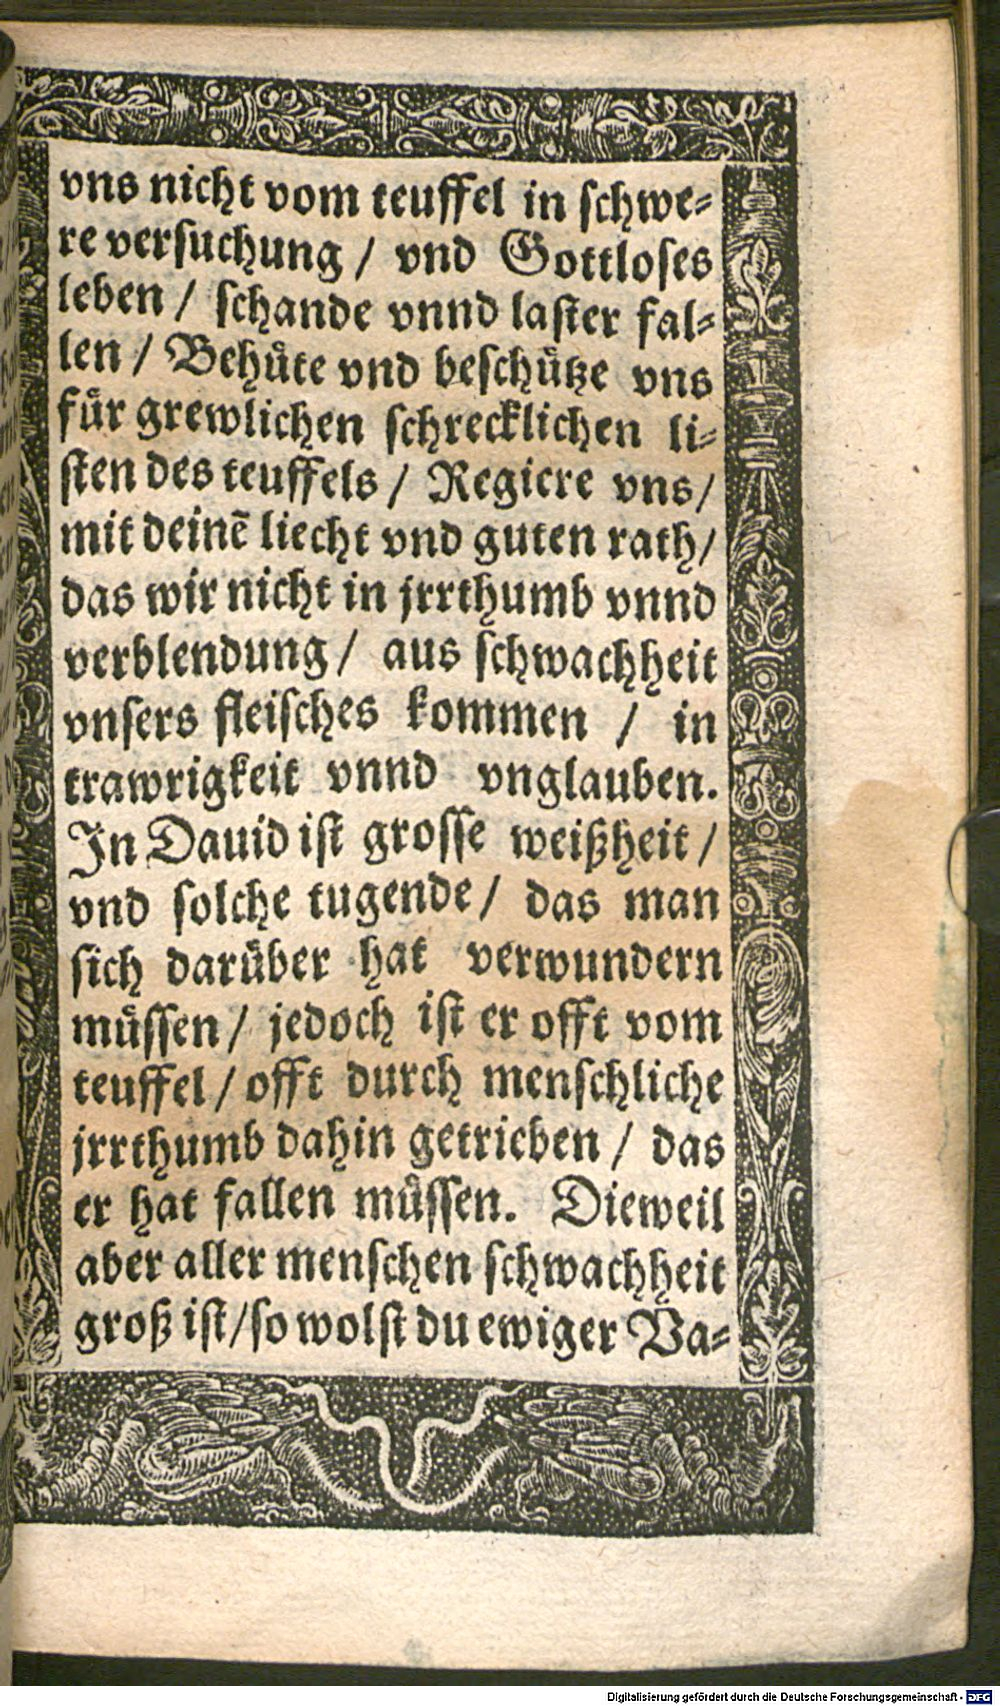 vns nicht vom teuffel in schwe-
re versuchung / vnd Gottloses
leben / schande vnnd laster fal-
len / Behuͤte vnd beschuͤtze vns
fuͤr grewlichen schrecklichen li-
sten des teuffels / Regiere vns /
mit deinē liecht vnd guten rath /
das wir nicht in jrrthumb vnnd
verblendung / aus schwachheit
vnsers fleisches kommen / in
trawrigkeit vnnd vnglauben.
In Dauid ist grosse weißheit /
vnd solche tugende / das man
sich daruͤber hat verwundern
muͤssen / jedoch ist er offt vom
teuffel / offt durch menschliche
jrrthumb dahin getrieben / das
er hat fallen muͤssen. Dieweil
aber aller menschen schwachheit
groß ist / so wolst du ewiger Va-
Digitalisierung gefördert durch die Deutsche Forschungsgemeinschaft - DFG